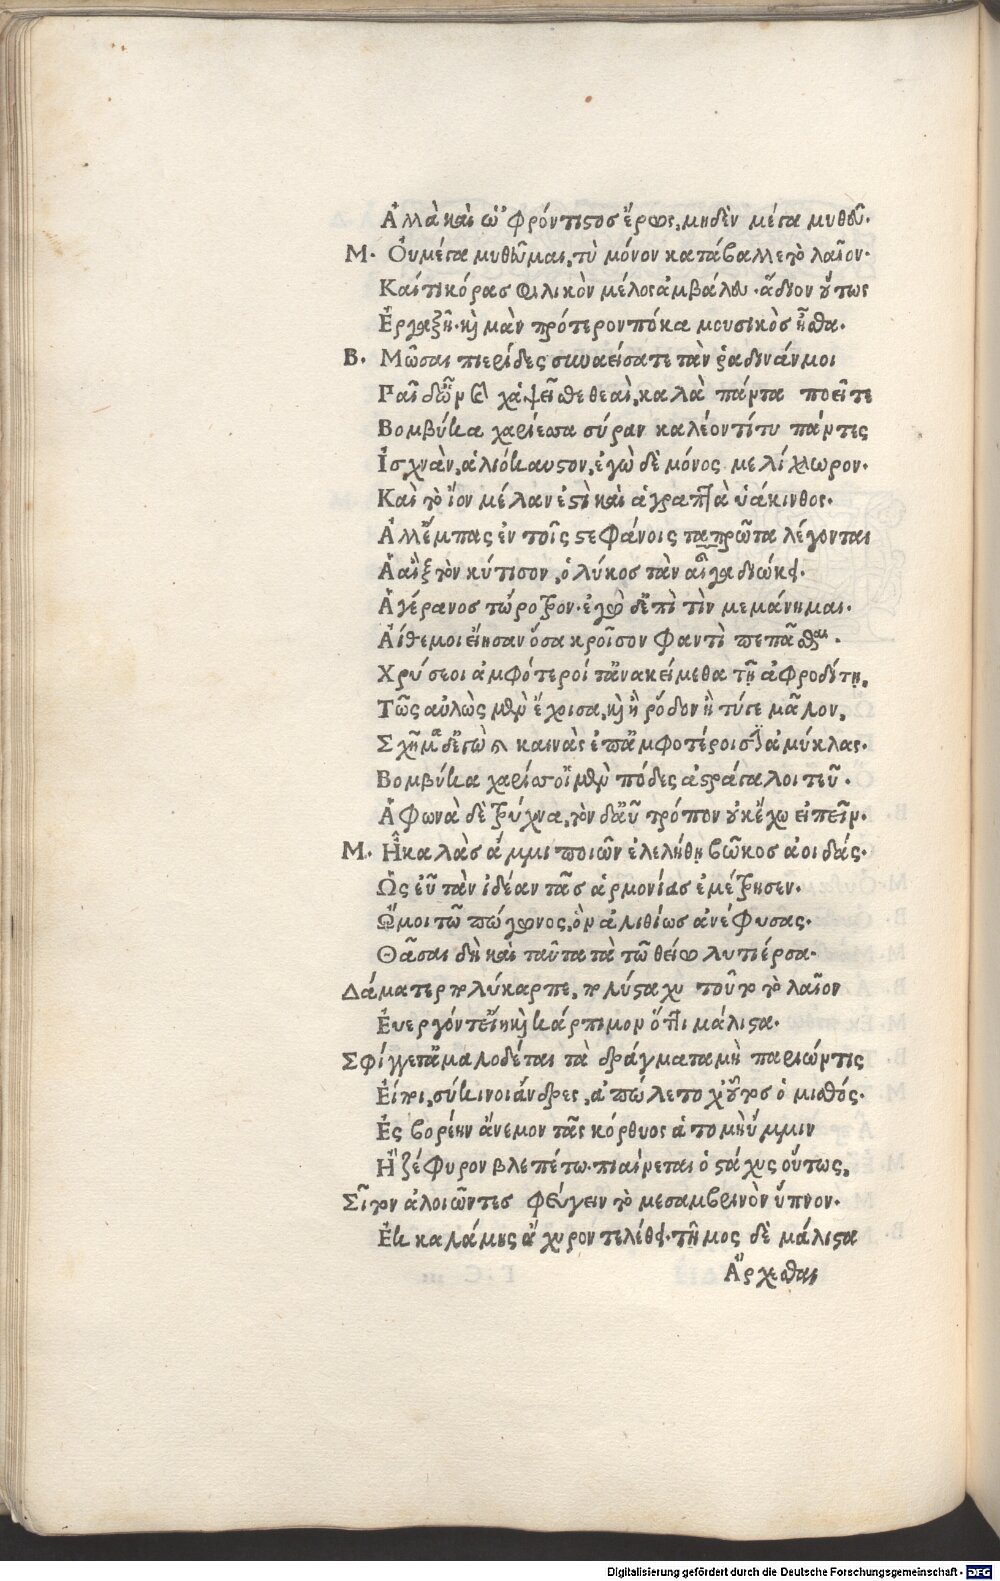 Ἀλλὰ καὶ ὡ᾽ φρόντιστος ἔρως. μηδὲν μέγα μυθοῦ.
Μ. Ὀυ μέγα μυθοῦμαι. τὺ μόνον κατάβαλλε τὸ λαῖον.
Καί τι κόρας φιλικὸν μέλος ἀμβάλευ. ἅδιον οὕτως
Ἐργαξῇ. καὶ μὰν πρότερον πόκα μουσικὸς ἦσθα.
Β. Μῶσαι πιερίδες συναείσατε τὰν ῥαδινάν μοι
Παῖδ᾽ ὧν γάρ χ᾽ ἅψεῖσθε θεαὶ, καλὰ πάντα ποεῖτε
Βομβύκα χαρίεσσα σύραν καλέοντί τυ πάντες
Ἰσχνὰν, ἁλιόκαυστον, ἐγὼ δὲ μόνος μελίχλωρον.
Καὶ τὸ ἴον μέλαν ἐστὶ καὶ ἁ γραπτὰ ὑάκινθος.
Ἀλλ᾽ ἔμπας ἐν τοῖς στεφάνοις τὰ πρῶτα λέγονται
Ἁ αἲξ τὸν κύτισον, ὁ λύκος τὰν αἶγα διώκει.
Ἁ γέρανος τὤροτρον. ἐγὼ δ᾽ ἐπὶ τὶν μεμάνημαι.
Αἴθε μοι ἔιης ἂν ὅσα κροῖσον φαντὶ πεπᾶσθαι.
Χρύσεοι ἀμφότεροί τ᾽ ἀνακείμεθα τῇ ἀφροδίτῃ.
Τῶς αὐλὼς μὲν ἔχοισα, καὶ ἢ ῥόδον ἢ τύγε μᾶλον.
Σχῆμα δ᾽ ἐγὼ καὶ καινὰς ἐπ᾽ ἀμφοτέροισιν ἀμύκλας.
Βομβύκα χαρίεσσ᾽ οἱ μὲν πόδες ἀστράγαλοι τεῦ.
Ἁ φωνὰ δὲ τρύχνα, τὸν δ᾽ αὖ τρόπον οὐκ ἔχω εἰπεῖν.
Μ. Ἦ καλὰς ἄμμι ποιῶν ἐλελήθη βῶκος ἀοιδάς.
Ὡς εὖ τὰν ἰδέαν τᾶς ἁρμονίας ἐμέτρησεν.
Ὤμοι τῶ πώγωνος, ὃν ἀλιθίως ἀνέφυσας.
Θᾶσαι δὴ καὶ ταῦτα τὰ τῶ θείω λυτιέρσα.
Δάματερ πολύκαρπε, πολύσταχυ τοῦτο τὸ λαῖον
Ἐυεργόν τ᾽ εἴη καὶ κάρπιμον ὅττι μάλιστα.
Σφίγγετ᾽ ἀμαλοδέται τὰ δράγματα μὴ παριώντις
Ἐίποι, σύκινοι ἄνδρες, ἀπώλετο χ᾽ οὗτος ὁ μισθός.
Ἐς βορέην ἄνεμον τᾶς κόρθυος ἁ τομὴ ὔμμιν
Ἢ ζέφυρον βλεπέτω. πιαίνεται ὁ στάχυς οὕτως.
Σῖτον ἀλοιῶντες φεύγειν τὸ μεσαμβρινὸν ὕπνον.
Ἐκ καλάμης ἄχυρον τελέθει. τῆμος δὲ μάλιστα
Ἄρχεσθαι
Digitalisierung gefördert durch die Deutsche Forschungsgemeinschaft - DFG